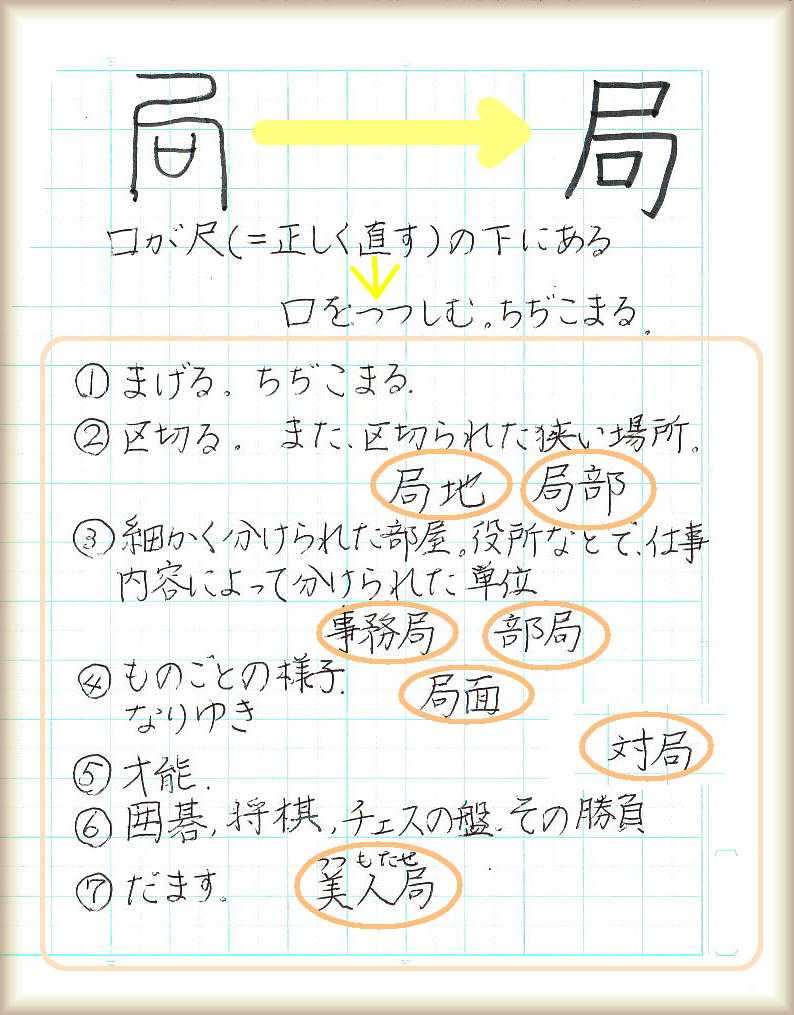 局 局
口が尺(=正しく直す)の下にある
口をつつしむ。ちぢこまる.
① まげる。ちぢこまる.
② 区切る。また、区切られた狭い場所。
局地 局部
③ 細かく分けられた部屋。役所などで、仕事
内容によって分けられた単位
事務局 部局
④ ものごとの様子.
局面
なりゆき
対局
⑤ 才能.
⑥ 囲碁,将棋,チェスの盤.その勝負
つつもたせ
⑦ だます。 美人局